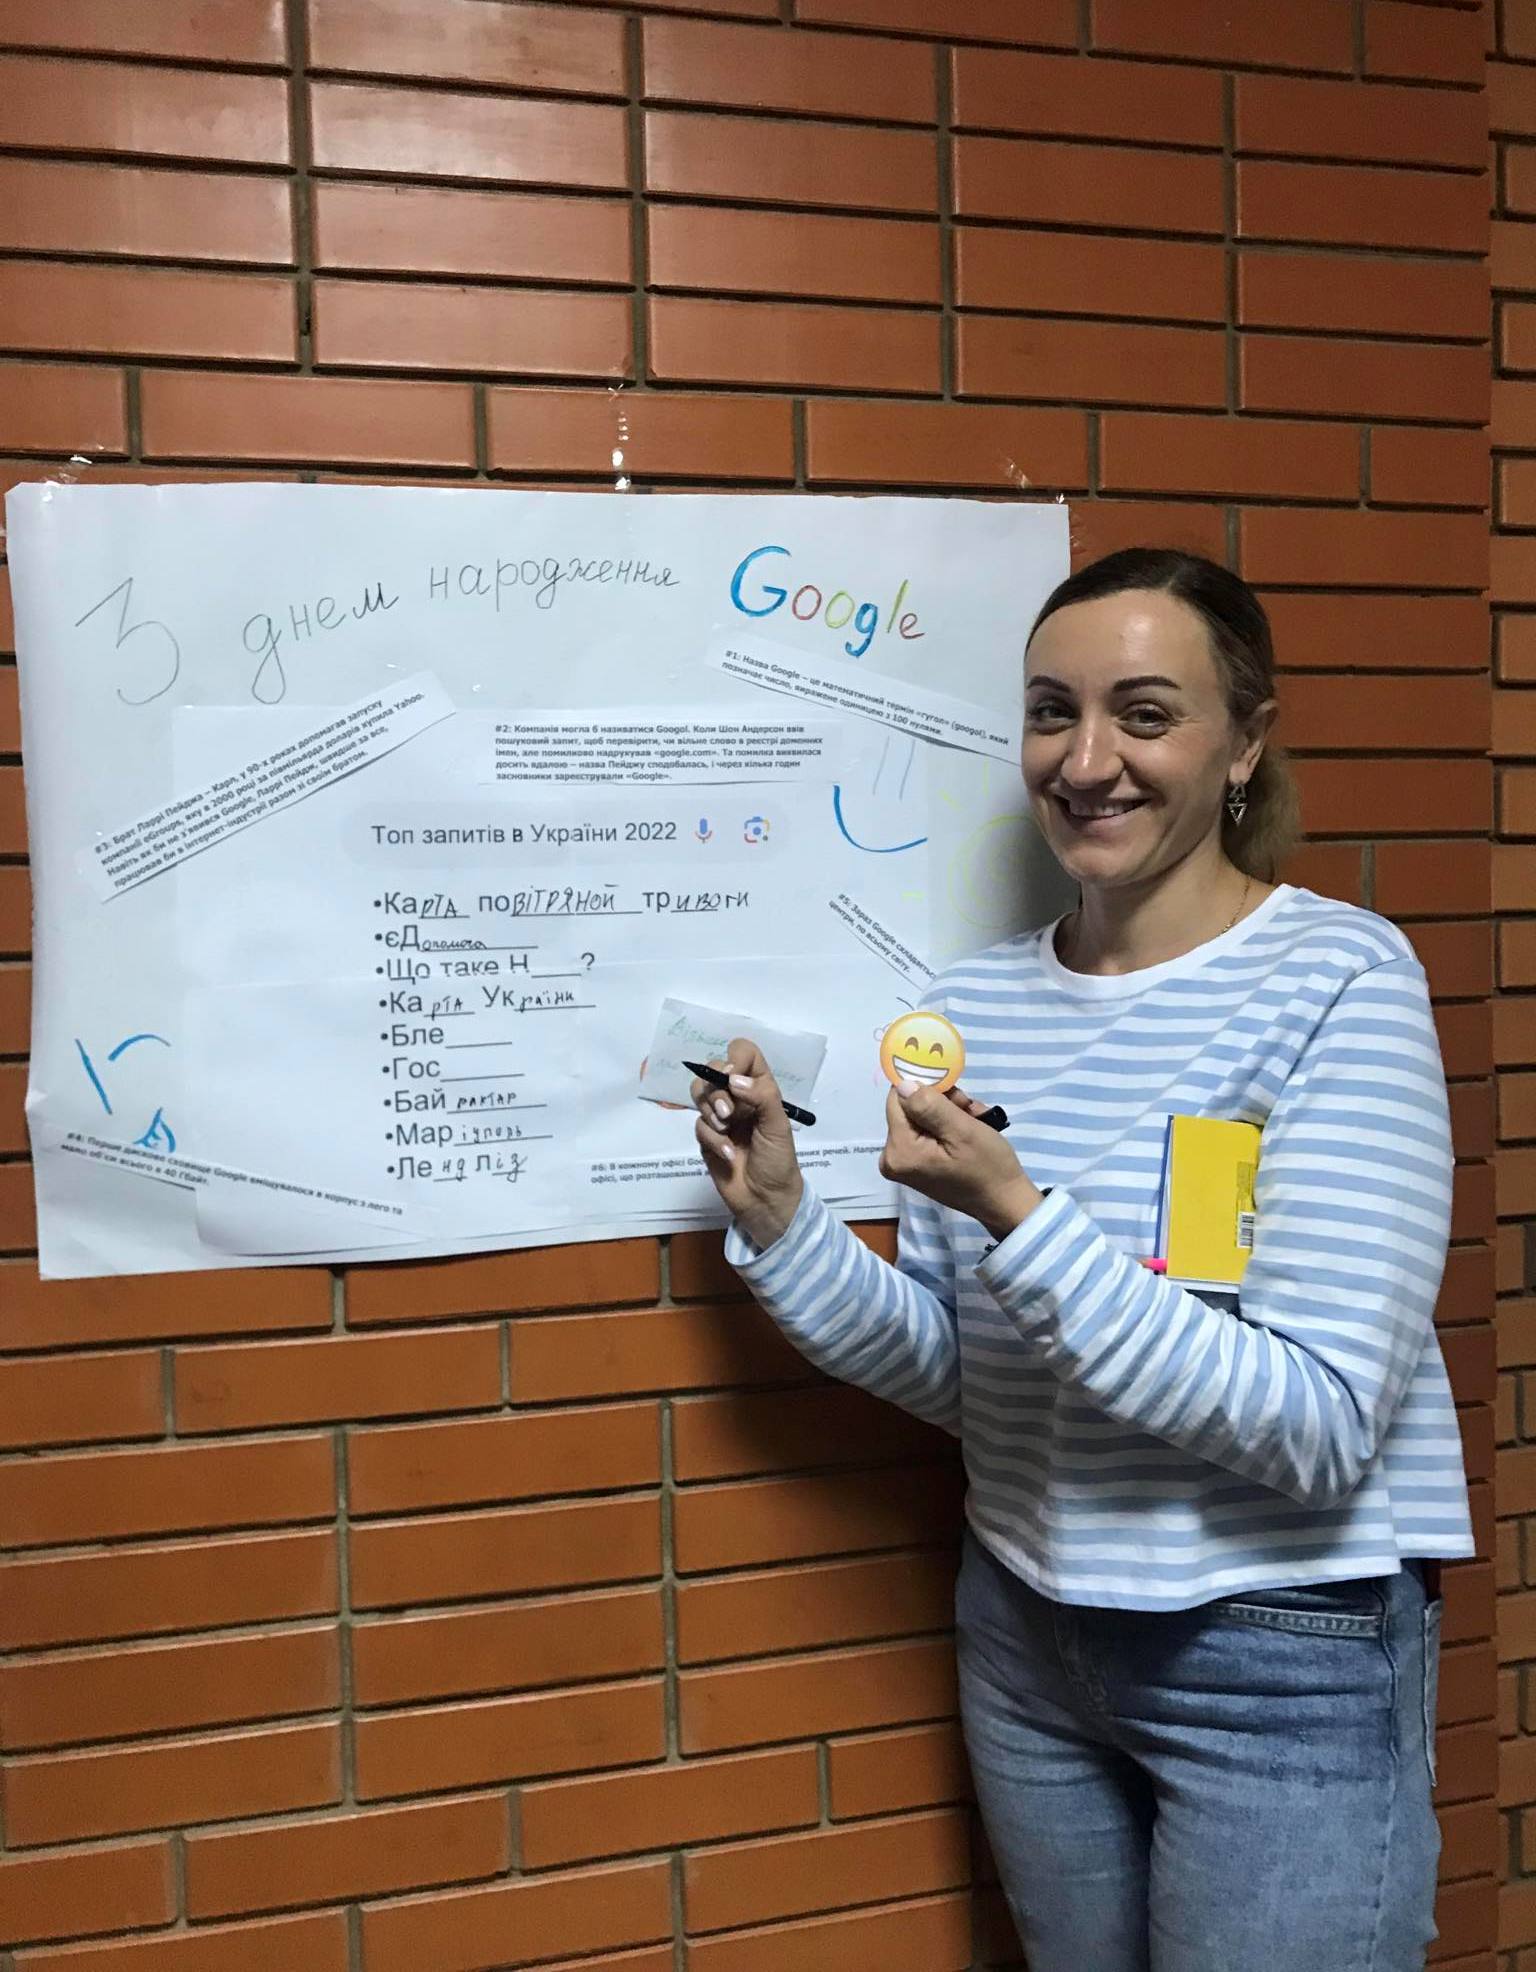 З днем народження Google
#1: Назва Google – це математичний термін «гугол» (googol), який
позначає число, виражене одиницею з 100 нулями.
#2: Компанія могла б називатися Googol. Коли Шон Андерсон ввів
пошуковий запит, щоб перевірити, чи вільне слово в реєстрі доменних
імен, але помилково надрукував «google.com». Та помилка виявилася
досить вдалою – назва Пейджу сподобалась, і через кілька годин
засновники зареєстрували «Google».
#3: Брат Ларрі Пейджа – Карл, у 90-х роках допомагав запуску
компанії eGroups, яку в 2000 році за півмільярда доларів купила Yahoo.
Навіть як би не з'явився Google, Ларрі Пейдж, швидше за все,
працював би в інтернет-індустрії разом зі своїм братом.
Топ запитів в України 2022
•Карта повітряной тривоги
•єДопомога
•Що таке Н____?
•Карта України
•Бле_____
•Гос______
•Байрактар
•Маріуполь
•Ленд Ліз
#5: Зараз Google складається
центри, по всьому світу.
#4: Перше дискове сховище Google вміщувалося в корпус з лего та
мало об'єм всього в 40 Гбайт.
#6: В кожному офісі Goo вних речей. Наприк
офісі, що розташований рактор.